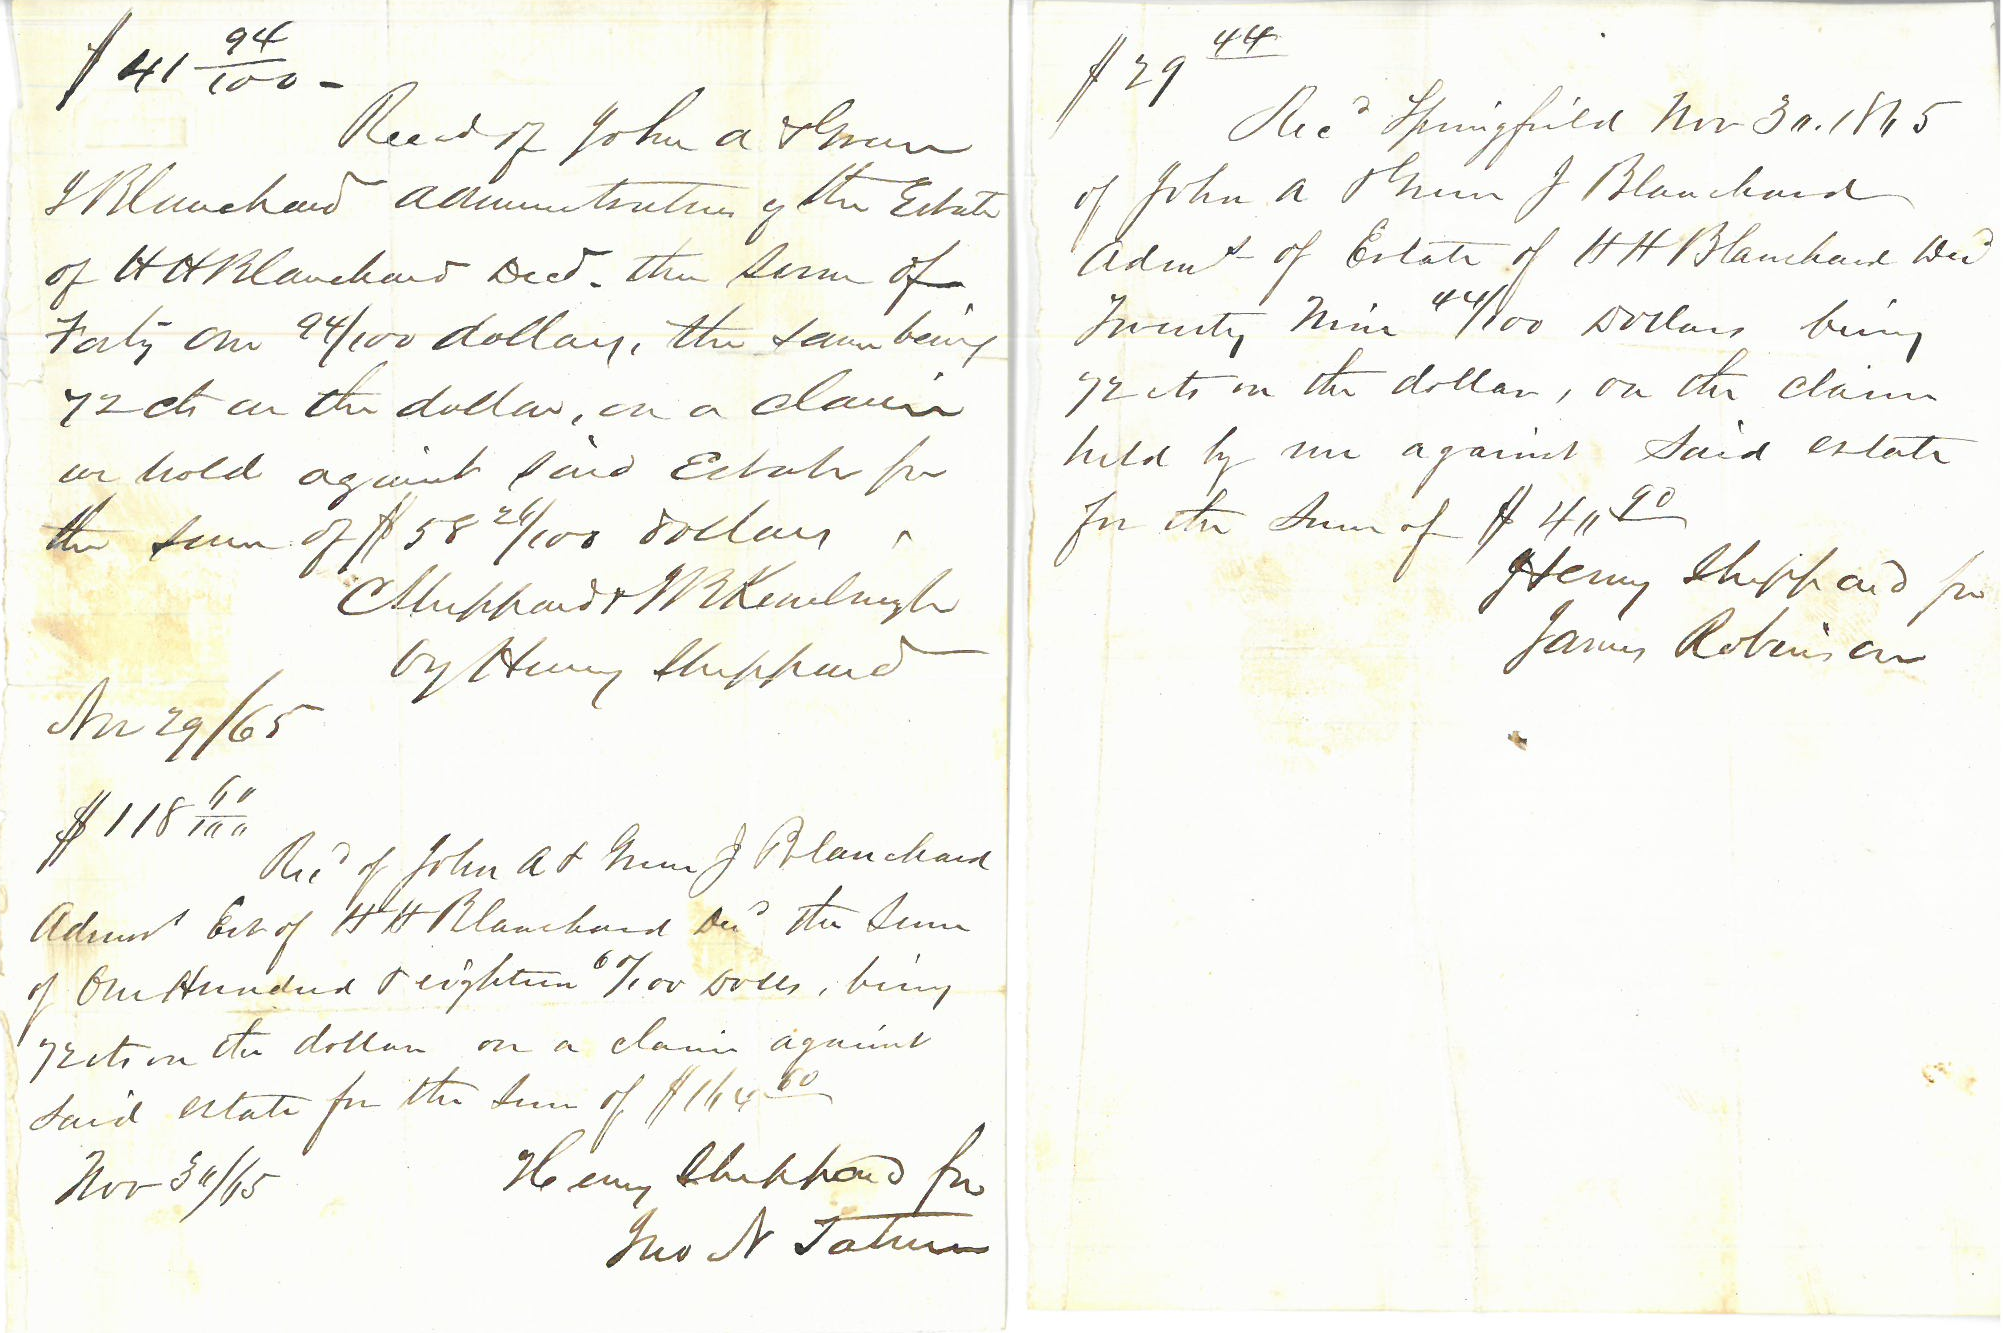 $ 41 94/100 -
Recd of John A & Green
J Blanchard administrators of the Estate
of H H Blanchard Decd. the sum of
Forty one 94/100 dollars, the same being
72 cts on the dollar, on a claim
we hold against said Estate for
the sum of $ 58 26/100 dollars
C Sheppard &
by Henry Sheppard
Nov 29/65
$ 118 60/100
Recd of John A & Green J Blanchard
Admrs Est of H H Blanchard Decd the sum
of One Hundred & eighteen 60/100 Dolls, being
72 cts on the dollar on a claim against
said estate for the sum of $ 164 60
Nov 30/65 Henry Sheppard for
Jno N Tatum
$ 29 44
Recd Springfield Nov 30. 1865
of John A & Green J Blanchard
Admrs of Estate of H H Blanchard Decd
Twenty Nine 44/100 Dollars being
72 cts on the dollar, on the claim
held by me against said estate
for the sum of $ 40 90
Henry Sheppard for
James Robinson